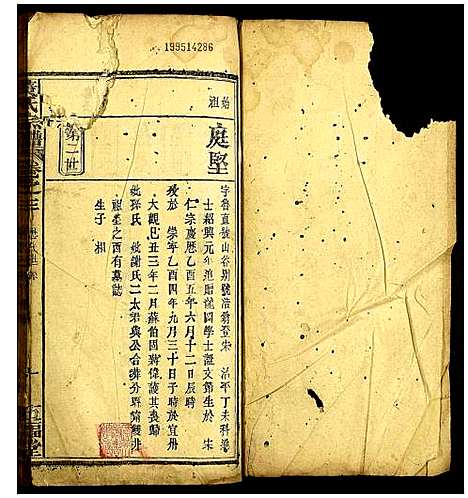 199514286
始
祖
庭堅
字魯直號山谷別號涪翁登宋 治平丁未科進
士紹興元年進贈龍圖學士諡文節生於 宋
仁宗慶歷乙酉五年六月十二日辰時
歿於 崇寧乙酉四年九月三十日子時於宜州
大觀己丑三年二月蘇伯固蔣偉護其喪歸
孫氏 謝氏二太君與公合葬分寧雙井
祖塋之西有墓誌
生子 相
第二世
氏宗譜 卷之